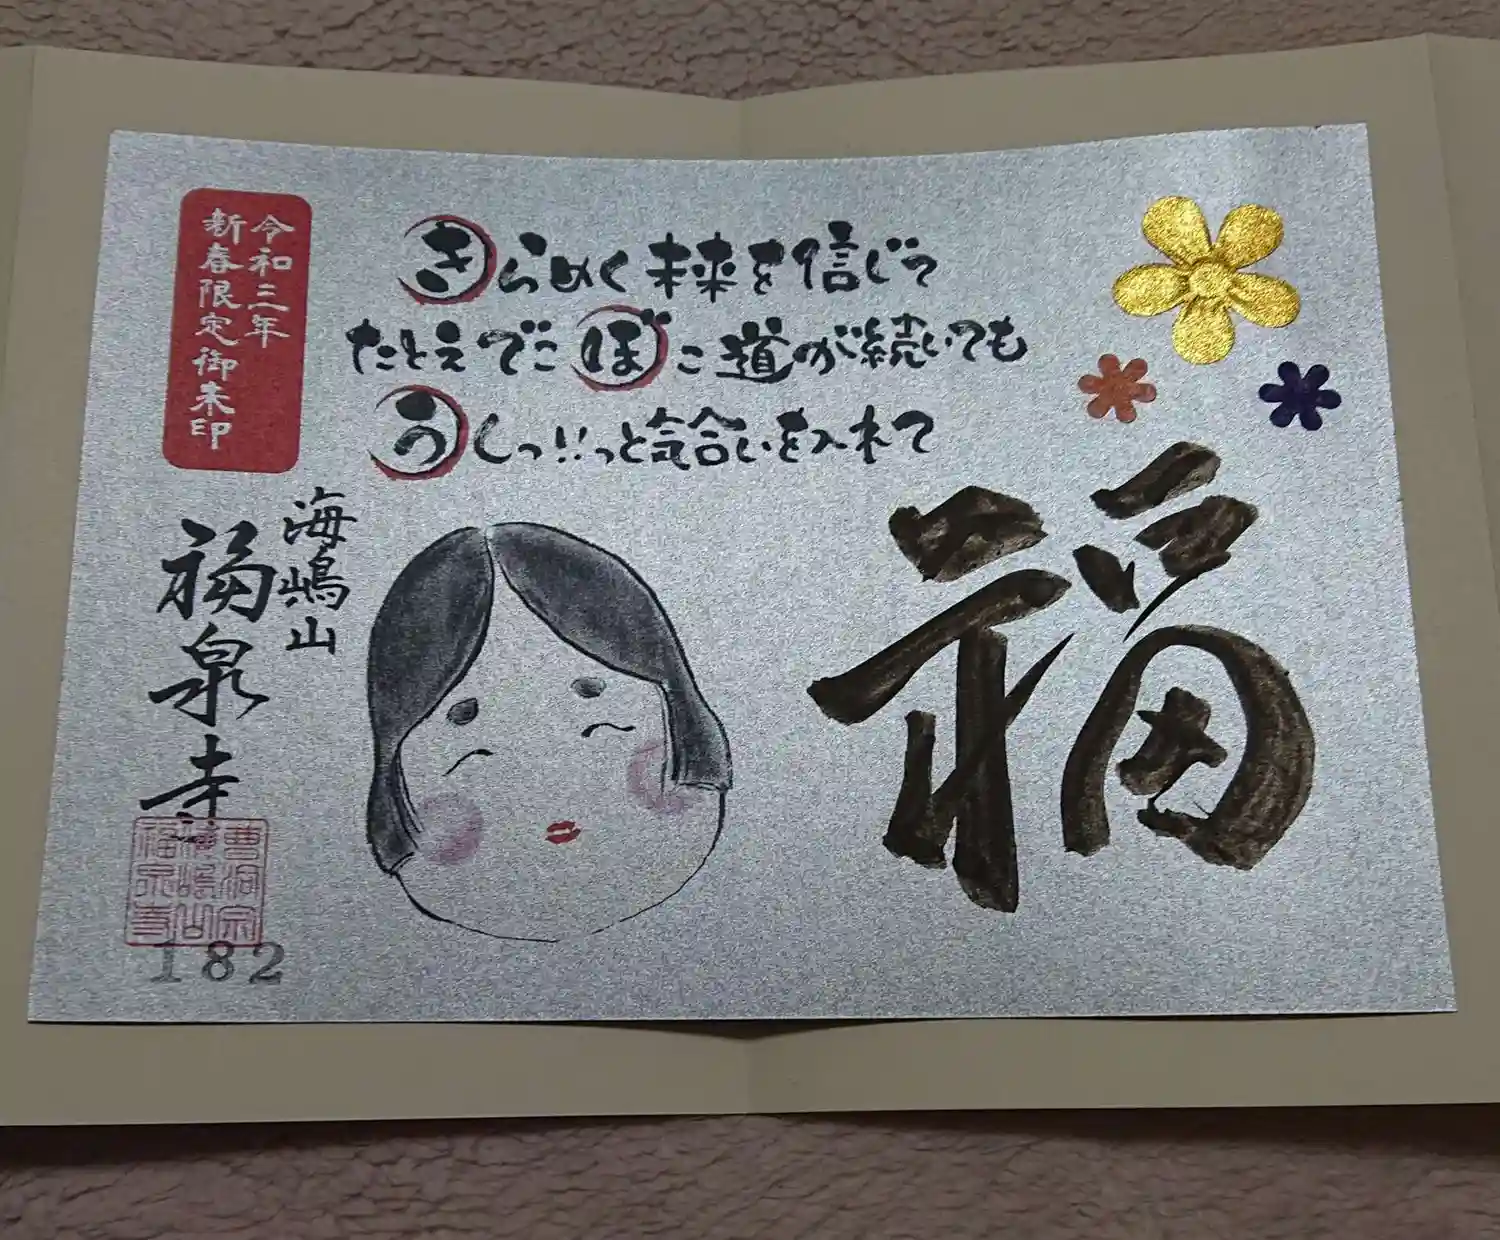 きらめく未来を信じて
たとえでこぼこ道が続いても
うしっ!!っと気合いを入れて
福
令和三年
新春限定御朱印
海嶋山
福泉寺
曹洞宗
海嶋山
福泉寺
182